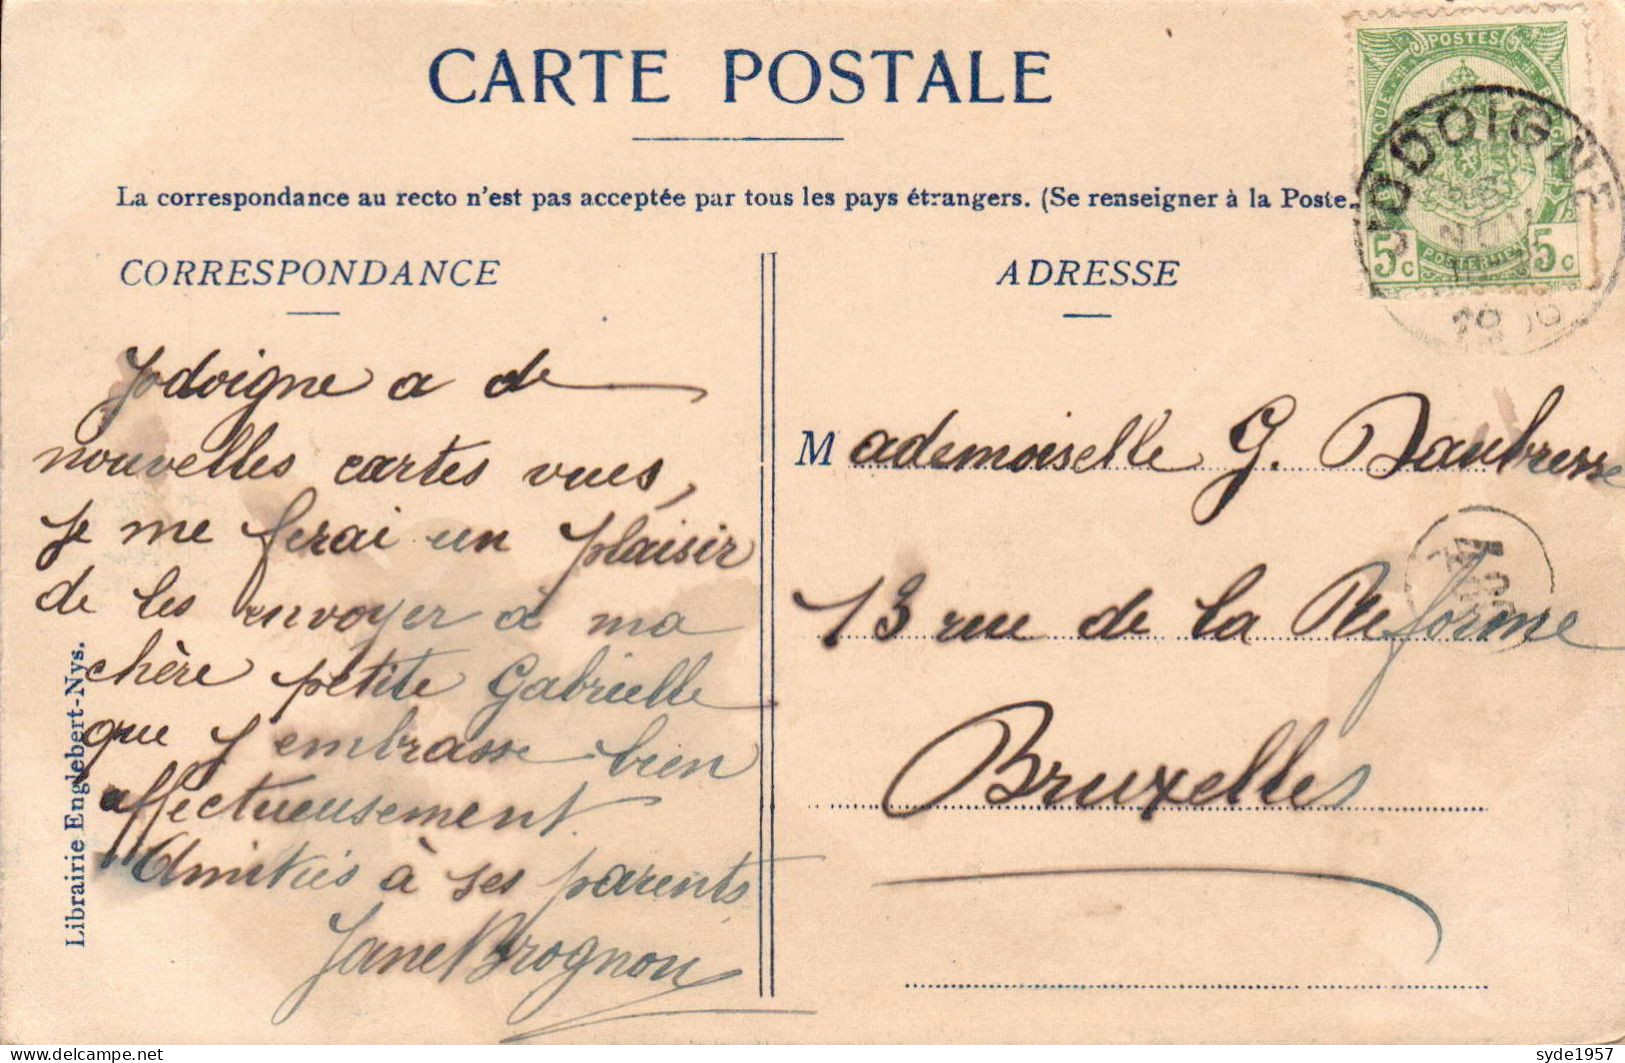 CARTE POSTALE
La correspondance au recto n'est pas acceptée par tous les pays étrangers. (Se renseigner à la Poste.
CORRESPONDANCE
Jodoigne a de
nouvelles cartes vues,
je me ferai un plaisir
de les envoyer à ma
chère petite Gabrielle
que j'embrasse bien
affectueusement
Amitiés à ses parents
Jane Brognon
Librairie Englebert-Nys.
ADRESSE
Mademoiselle G. Daubresse
13 rue de la Réforme
Bruxelles
POSTES
5c 5c
JODOIGNE
syde1957